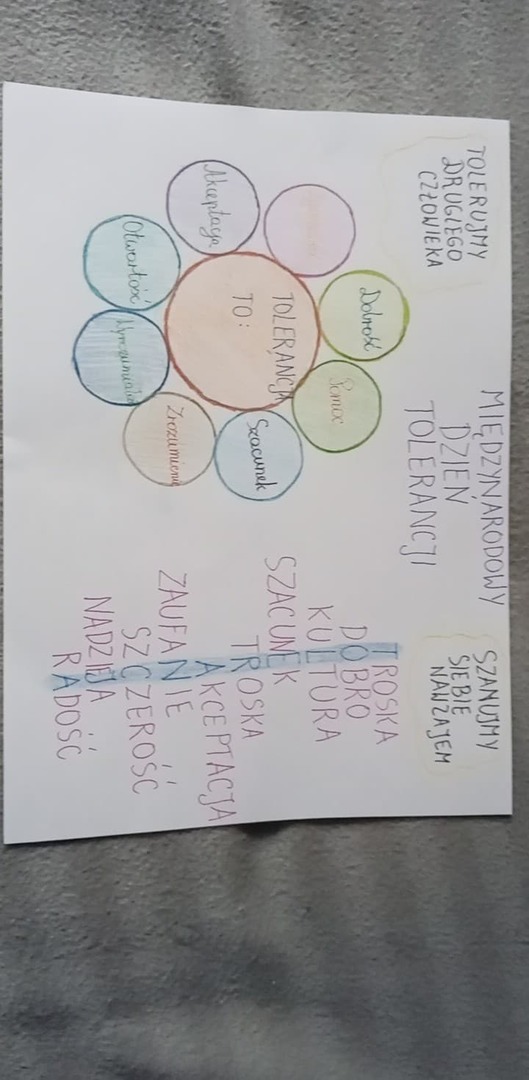 MIĘDZYNARODOWY
DZIEŃ
TOLERANCJI
TOLERUJMY
DRUGIEGO
CZŁOWIEKA
SZANUJMY
SIEBIE
NAWZAJEM
TOLERANCJA
TO:
Pomoc
Szacunek
Zrozumienie
Wyrozumiałość
Otwartość
Akceptacja
TROSKA
DOBRO
KULTURA
SZACUNEK
TROSKA
AKCEPTACJA
ZAUFANIE
SZCZEROŚĆ
NADZIEJA
RADOŚĆ